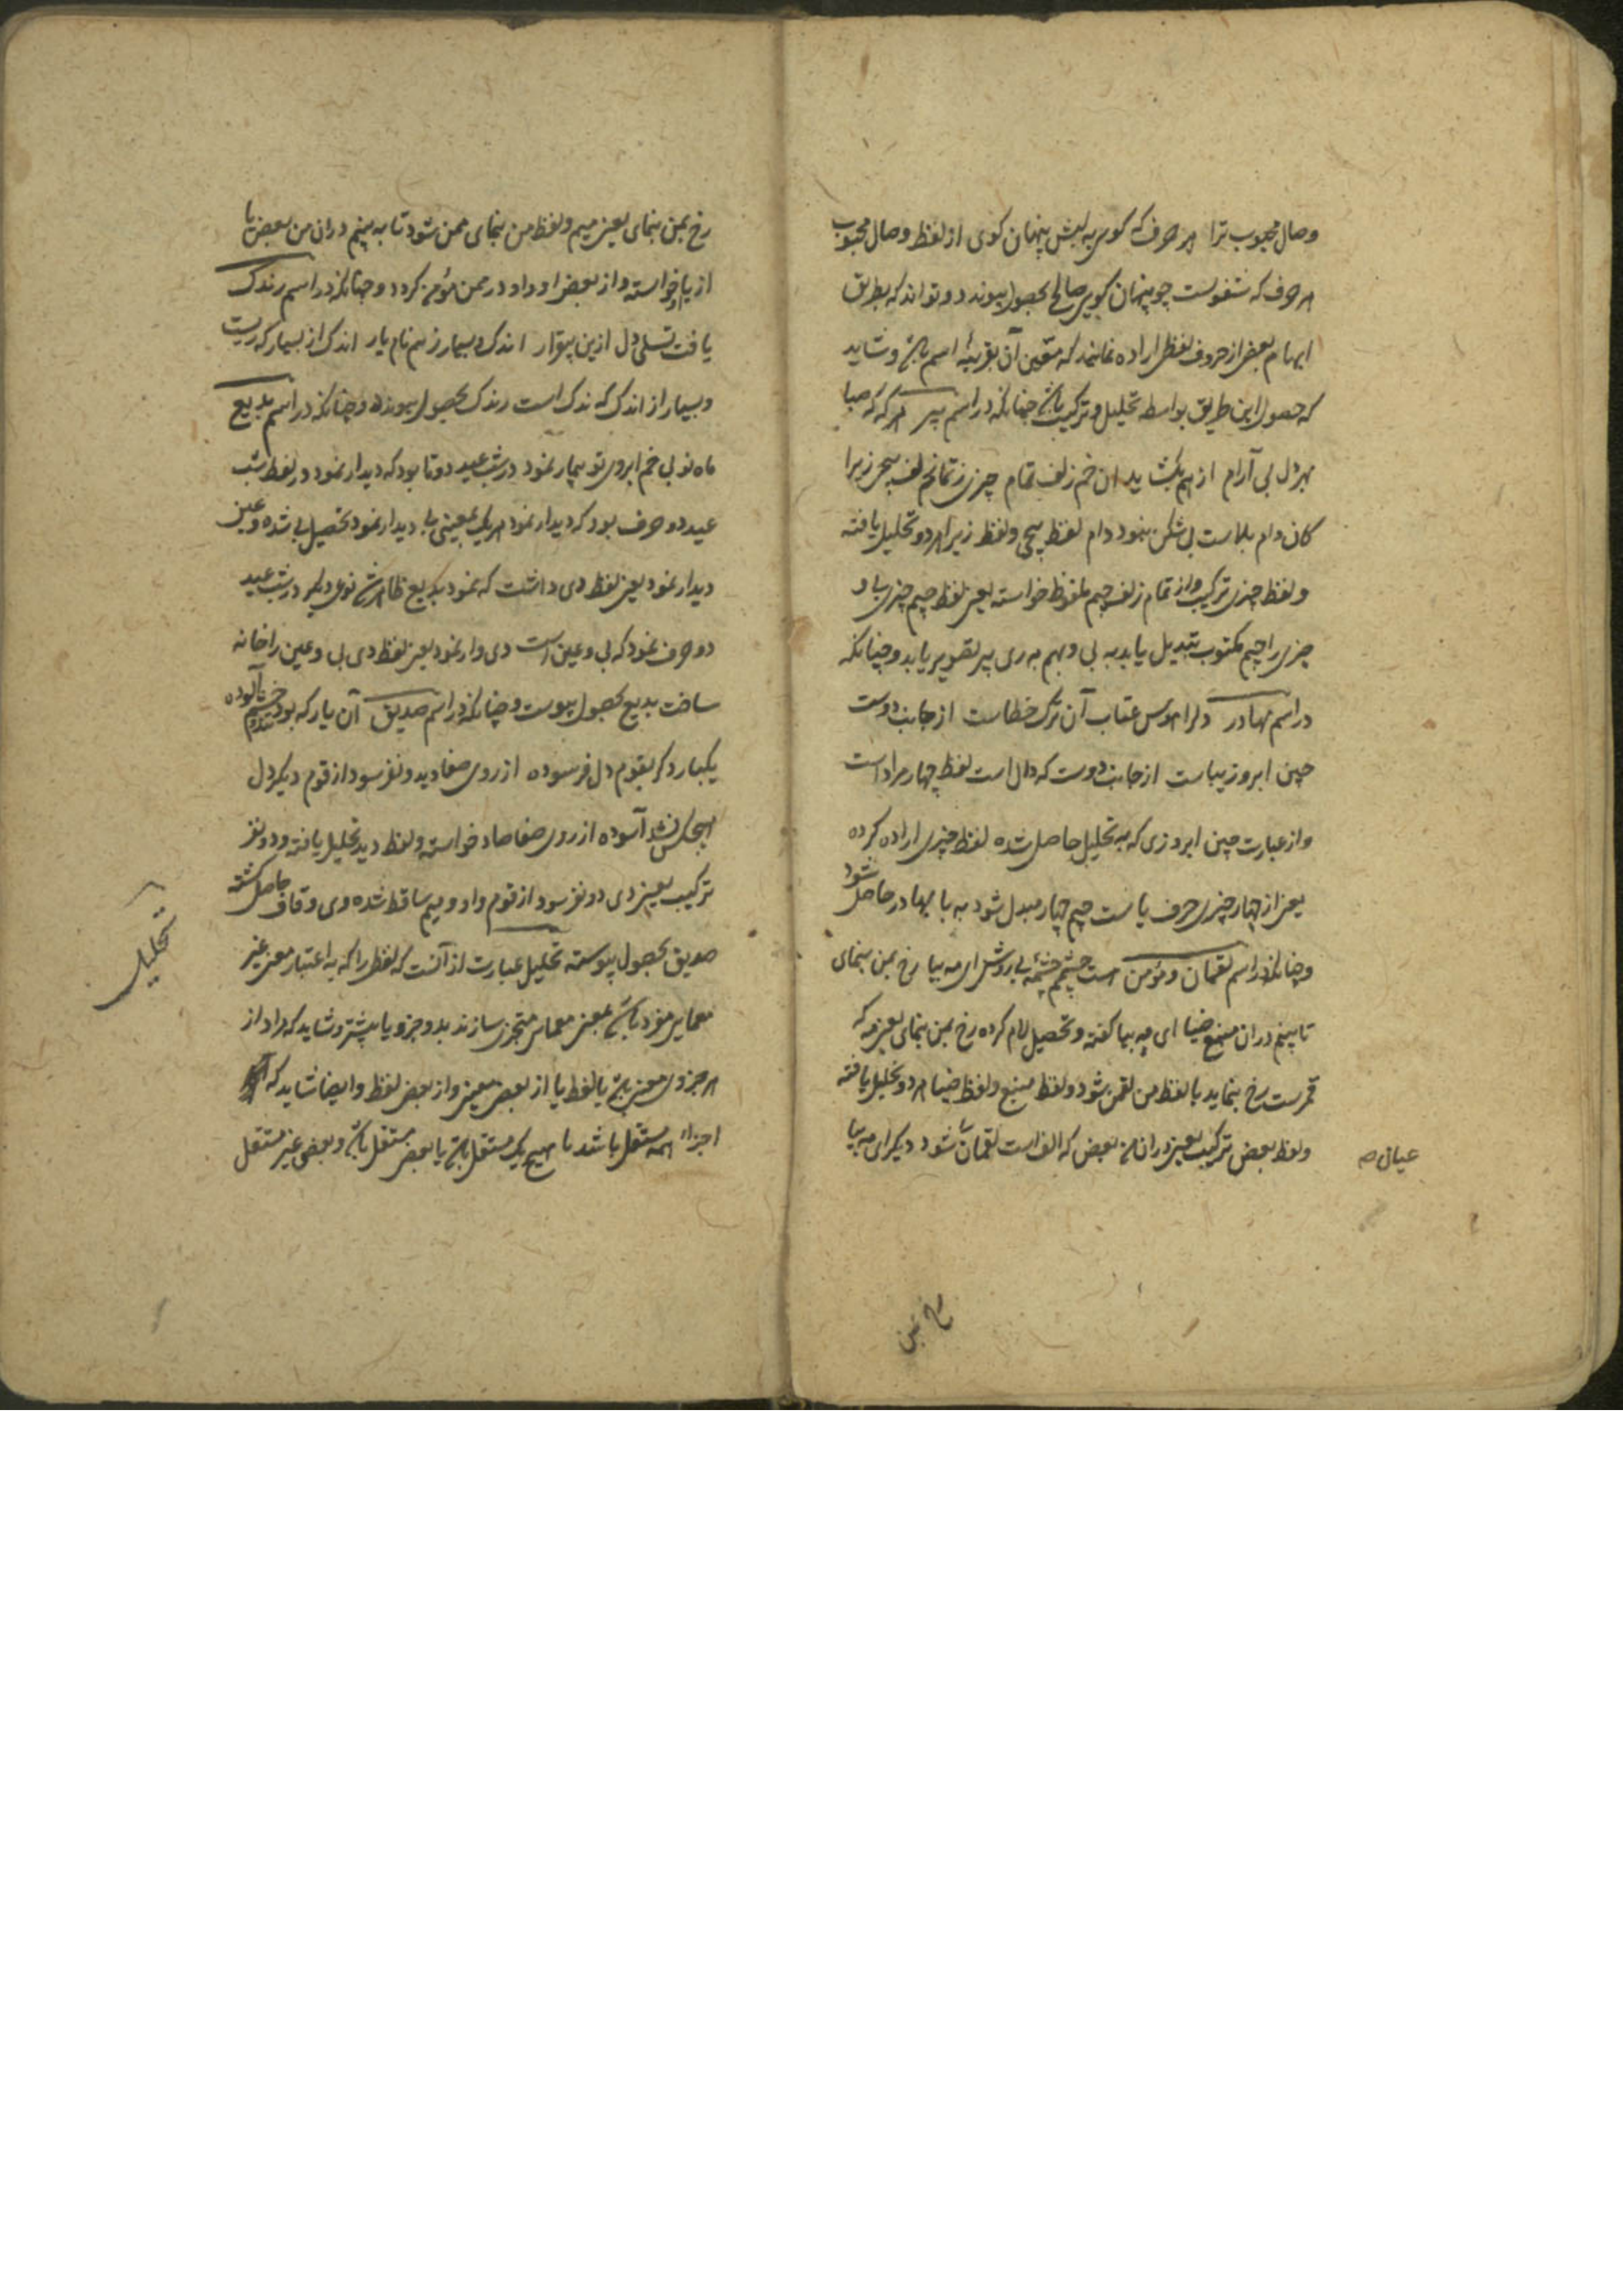 وصال محبوب ترا هر حرف که کوی به لبش پنهان کوی از لفظ وصال محبوب
هر حرف که شفویست چو پنهان کویی صالح بحصول پیوندد و تواند که بطریق
ابهام بعضی از حروف لفظی اراده نمایند که متعین آن بقرینهٔ اسم باشد و شاید
که حصول این طریق بواسطه تحلیل و ترکیب باشد چنانکه در اسم پیر هر که که صبا
بهر دل بی آرام از هم بکشاید ان خم زلف تمام چیزی ز تمام زلف پیچی زیرا
کان دام بلاست بی شکن ننمود دام لفظ پیچی و لفظ زیرا هر دو تحلیل یافته
و لفظ چیزی ترکیب و از تمام زلف جیم ملفوظ خواسته یعنی لفظ جیم چیزی
چیزی را جیم مکتوب تبدیل یابد به بی و بهم به ری پیر تصویر یابد و چنانکه
در اسم بهادر دلرا هوس عتاب آن ترک خطاست از جانب دوست
چین ابرو زیباست از جانب دوست که دال است لفظ چهار مراد است
و از عبارت چین ابروزی که به تحلیل حاصل شده لفظ چیزی اراده کرده
یعنی از چهار چیزی حرف یا ست جیم چهار مبدل شود به با بهادر حاصل شود
و چنانکه در اسم لقمان و مؤمن است چشم چشمه بی رویش ای مه بیا رخ بمن بنمای
تا بینم دران منبع ضیا ای مه بیا کفته و تحصیل لام کرده رخ بمن بنمای یعنی مه که
قمرست رخ بنماید با لفظ من لقمن شود و لفظ منبع و لفظ ضیا هر دو تحلیل یافته
و لفظ بعض ترکیب یعنی دران من بعض که الف است لقمان شود دیکر ای مه بیا
عیان صه
رخ بمن
رخ بمن بنمای یعنی میم و لفظ من بنمای ممن شود تا به بینم دران من بعض یا
از یا خواسته و از بعض او واو در ممن مؤمن کردد و چنانکه در اسم رندک
یافت تسلی دل ازین بیقرار اندک و بسیار ز هم نام یار اندک از بسیار که ریست
و بسیار از اندک که ندک است رندک بحصول پیوندد و چنانکه در اسم بدیع
ماه نو بی خم ابروی تو بیمار نمود در شب عید دو تا بود که دیدار نمود در لفظ شب
عید دو حرف بود که دیدار نمود هر یک بمعینی بی دیدار نمود تحصیل بی شده و عین
دیدار نمود یعنی لفظ دی داشت که نمود بدیع ظاهر شد نوعی دیکر در شب عید
دو حرف نمود که بی و عین است دی وار نمود یعنی لفظ دی بی و عین را خانه
ساخت بدیع بحصول پیوست و چنانکه در اسم صدیق آن یار که بود خشم آلوده
یکبار دکر بقوم دل فرسوده از روی صفا دید و نفرسود از قوم دیکر دل
هیچکس نشد آسوده از روی صفا صاد خواسته و لفظ دید تحلیل یافته و دو نفر
ترکیب یعنی دی دو نفر سود از قوم واو و میم ساقط شده و ی و قاف حاصل کشته
صدیق بحصول پیوسته تحلیل عبارت از آنست که لفظ را که به اعتبار معنی غیر
معمایی مفرد باشد بمعنی معمایی متجزی سازند بدو جزو یا بیشتر و شاید که مراد از
هر جزوی معنی باشد یا لفظ یا از بعض معنی و از بعض لفظ و ایضا شاید که
اجزاء همه مستقل باشد یا هیچ یک مستقل باشد یا بعض مستقل باشد و بعض غیر مستقل
تحلیل